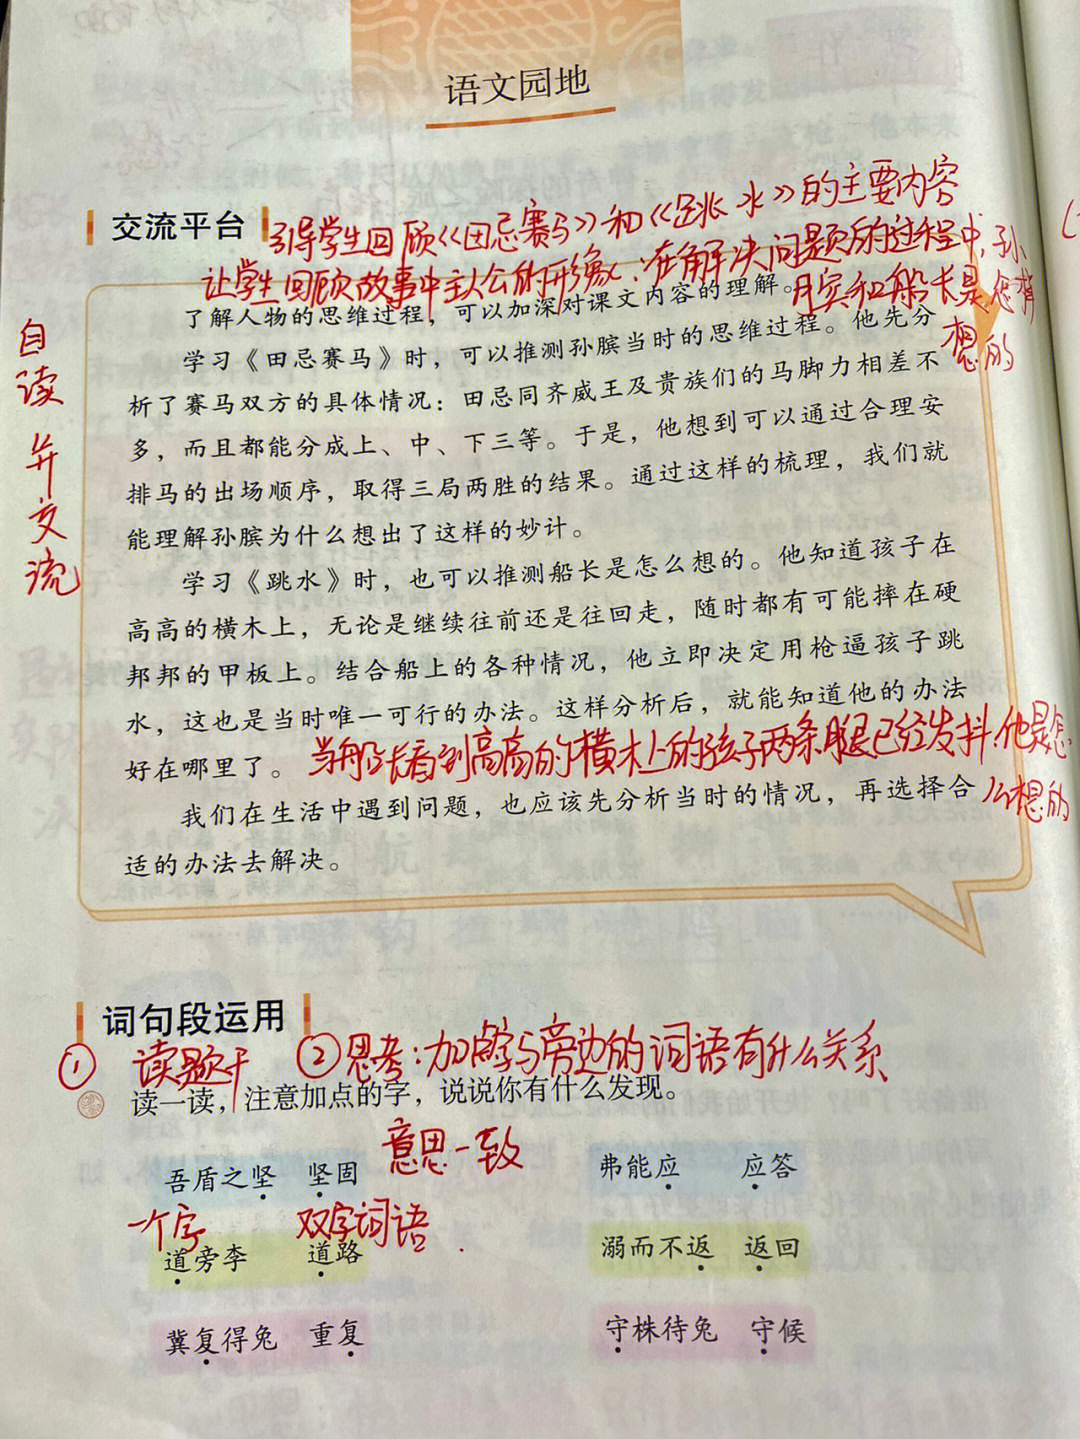 语文园地
交流平台
引导学生回顾《田忌赛马》和《跳水》的主要内容
让学生回顾故事中主人公的形象，在解决问题的过程中，孙
膑和船长是怎样
想的
自读并交流
了解人物的思维过程，可以加深对课文内容的理解。
学习《田忌赛马》时，可以推测孙膑当时的思维过程。他先分
析了赛马双方的具体情况：田忌同齐威王及贵族们的马脚力相差不
多，而且都能分成上、中、下三等。于是，他想到可以通过合理安
排马的出场顺序，取得三局两胜的结果。通过这样的梳理，我们就
能理解孙膑为什么想出了这样的妙计。
学习《跳水》时，也可以推测船长是怎么想的。他知道孩子在
高高的横木上，无论是继续往前还是往回走，随时都有可能摔在硬
邦邦的甲板上。结合船上的各种情况，他立即决定用枪逼孩子跳
水，这也是当时唯一可行的办法。这样分析后，就能知道他的办法
好在哪里了。
当船长看到高高的横木上的孩子两条腿已经发抖，他是怎
么想的
我们在生活中遇到问题，也应该先分析当时的情况，再选择合
适的办法去解决。
词句段运用
①读题干 ②思考：加点字与旁边的词语有什么关系
读一读，注意加点的字，说说你有什么发现。
意思一致
吾盾之坚 坚固 弗能应 应答
一个字 双字词语
道旁李 道路 溺而不返 返回
冀复得兔 重复 守株待兔 守候